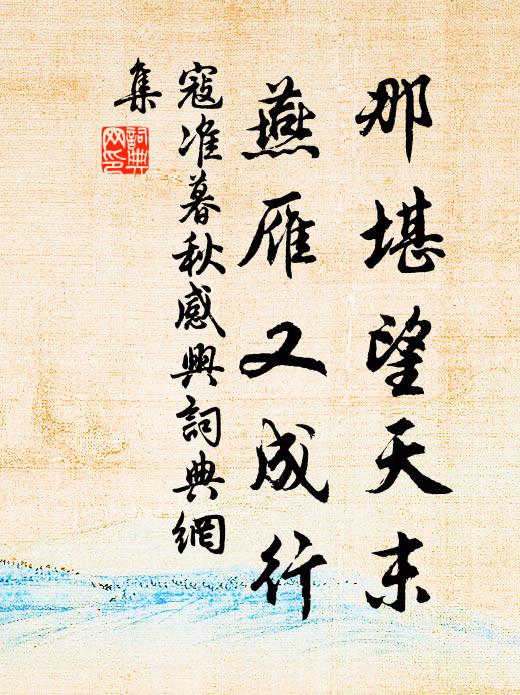 那堪望天末
燕雁又成行
寇准暮秋感興詞典網
集
詞典網印